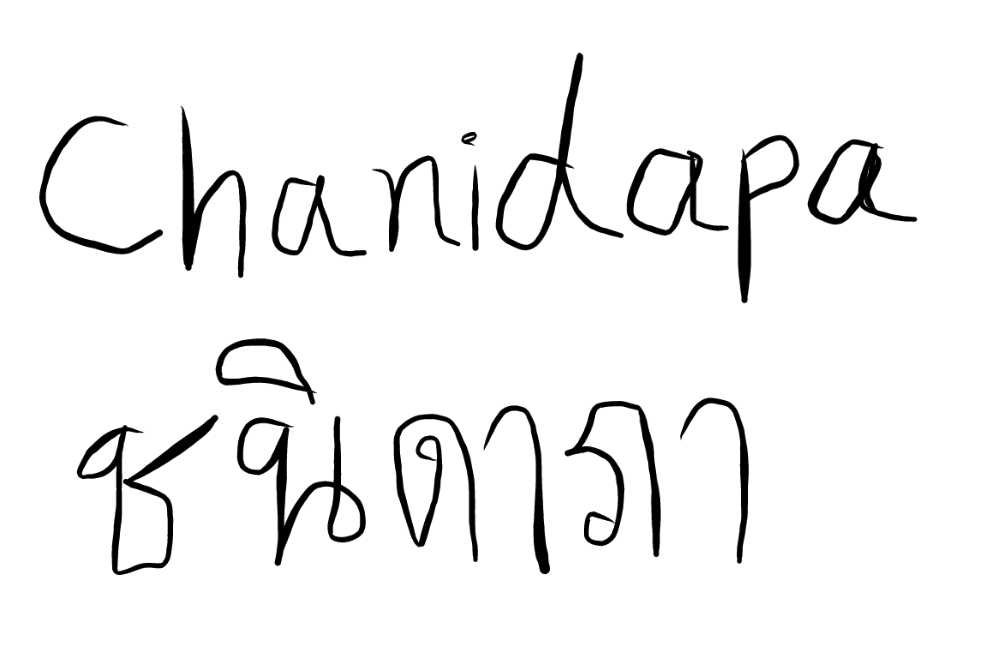 Chanidapa
ชนิดาภา